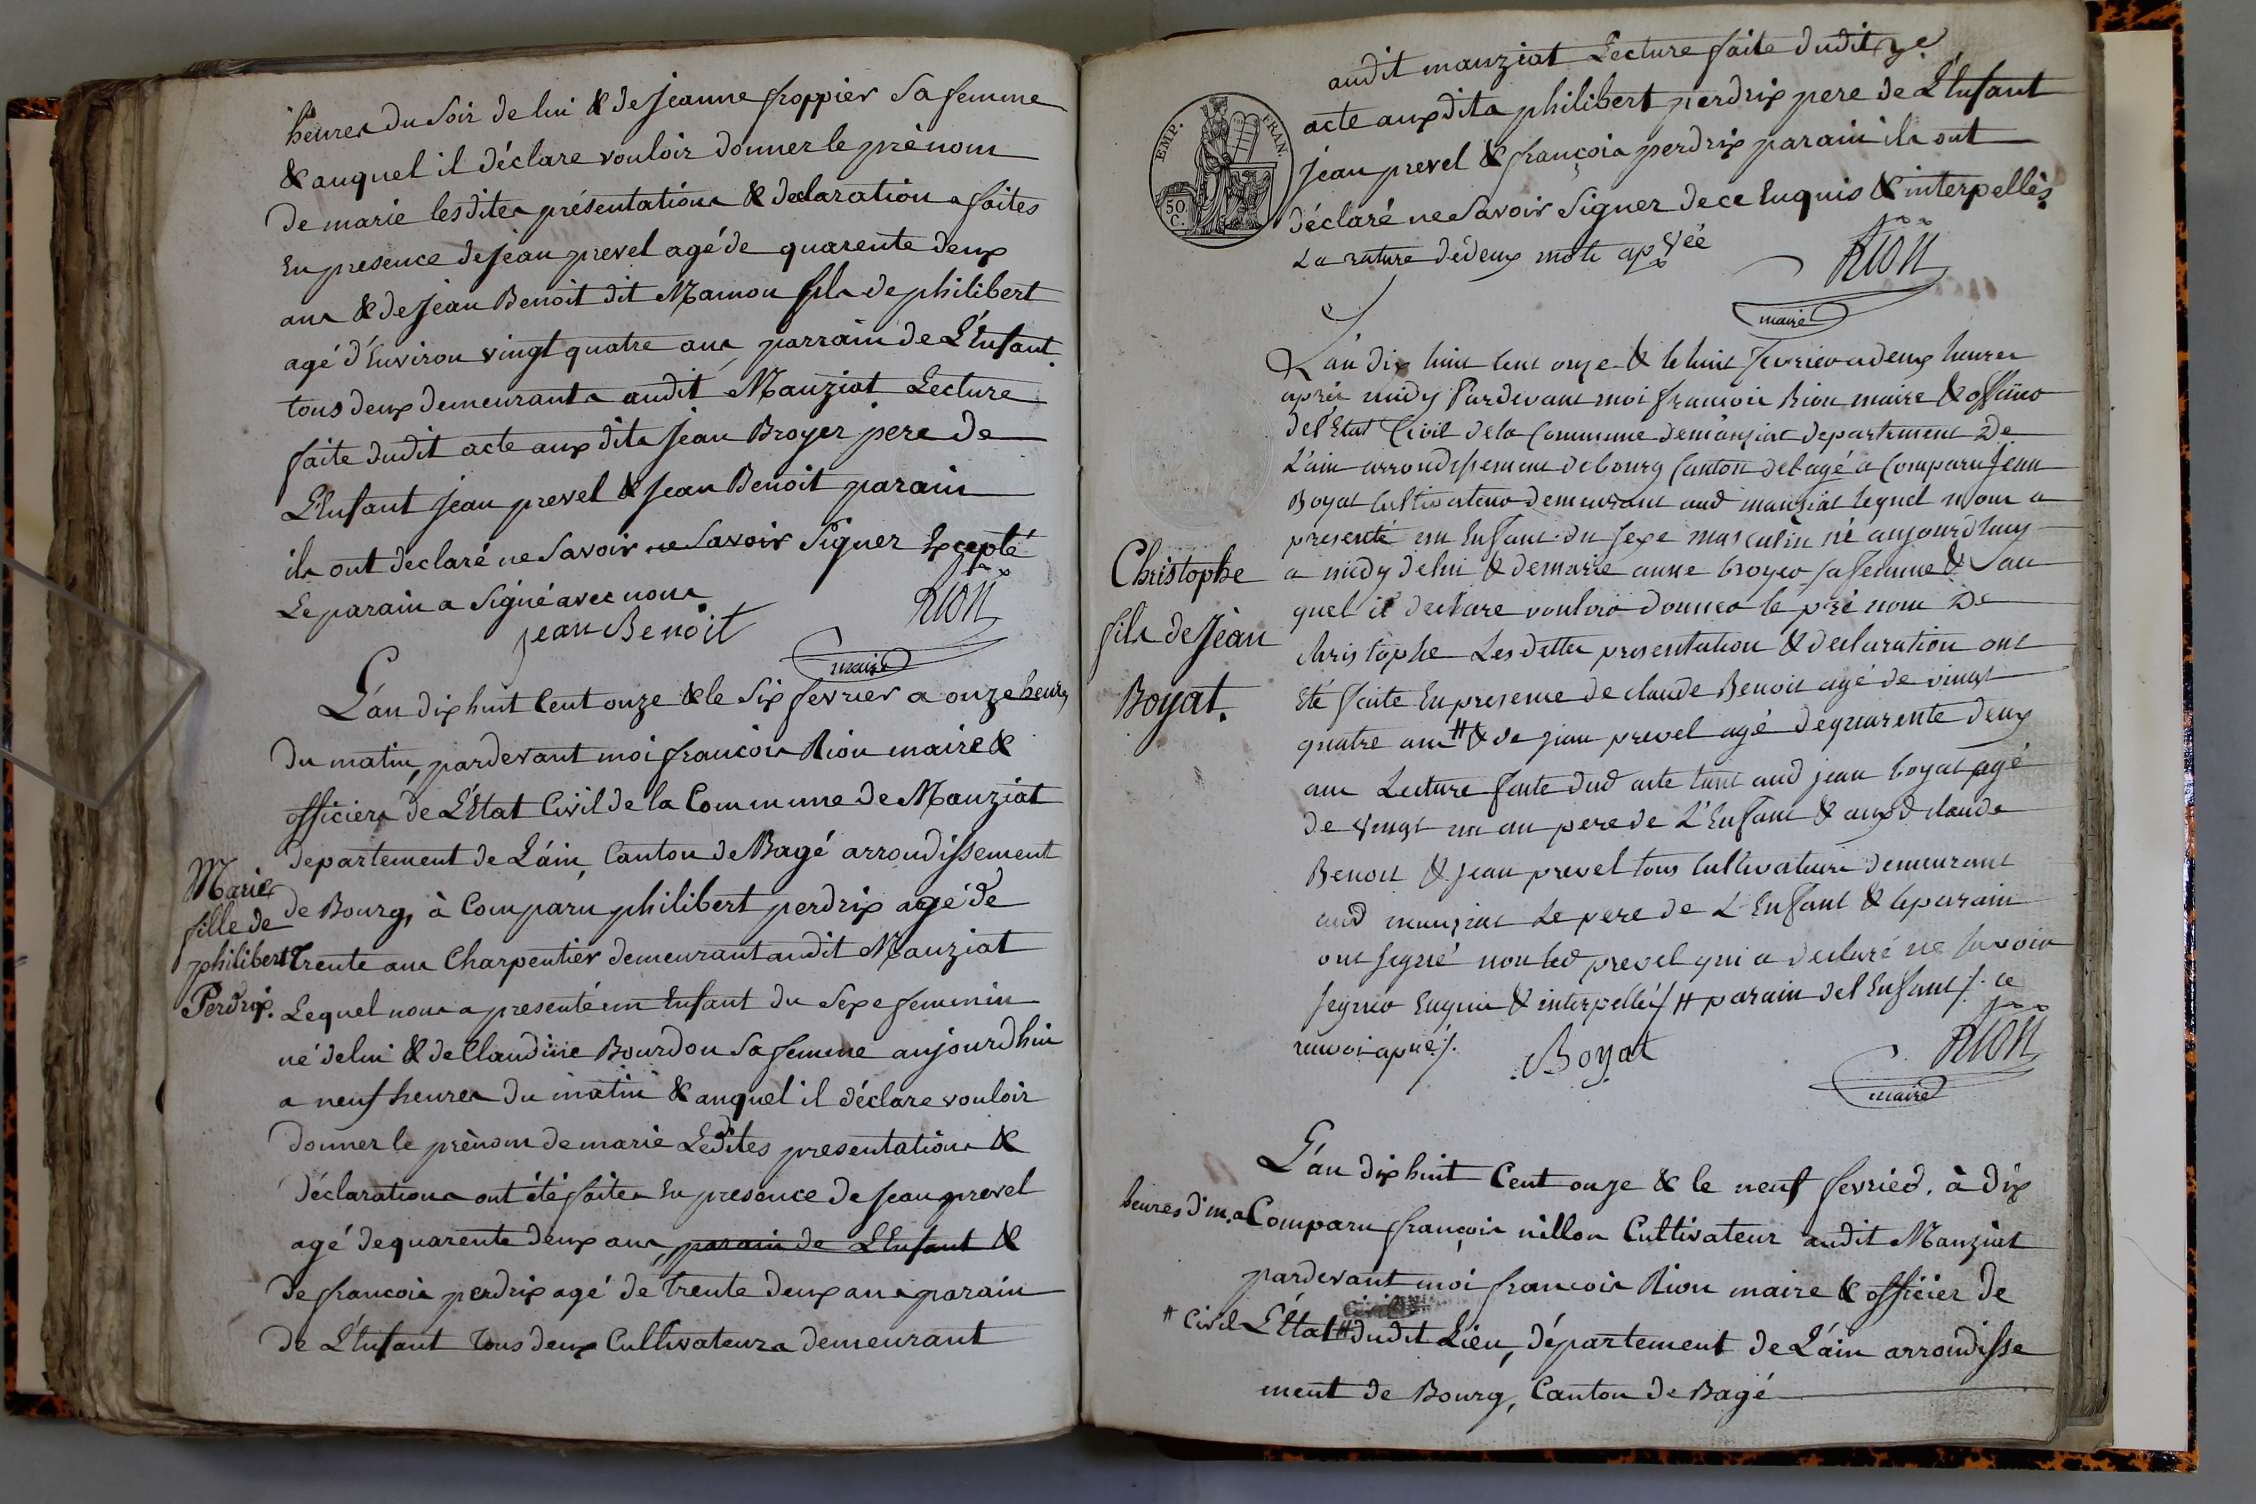 heures du Soir de lui & de jeanne froppier Sa femme
& auquel il déclare vouloir donner le prénom
de marie lesdites présentations & declaration faites
En presence de jean prevel agé de quarente deux
ans & de jean Benoit dit Mamon fils de philibert
agé d'Environ vingt quatre ans parrain de L'Enfant.
tous deux demeurants audit Mauziat Lecture
faite dudit acte auxdits jean Broyer pere de
L'Enfant jean prevel & jean Benoit parain
ils ont declaré ne Savoir ne Savoir Signer Excepté
Le parain a Signé avec nous
jean Benoit
Rion
maire
L'an dix huit Cent onze & le Six fevrier a onze heures
du matin, pardevant moi francois Rion maire &
officiers de L'Etat Civil de la Commune de Mauziat
departement de L'ain, Canton de Bagé arrondissement
Marie
fille de
philibert
Perdrix.
de Bourg, à Comparu philibert perdrix agé de
trente ans Charpentier demeurant audit Mauziat
Lequel nous a presenté un Enfant du Sexe feminin
né de lui & de Claudine Bourdon Sa femme aujourdhui
a neuf heures du matin & auquel il déclare vouloir
donner le prènom de marie Ledites presentations &
déclarations ont été faites En presence de jean prevel
agé de quarente deux ans, parain de L'Enfant &
de francois perdrix agé de trente deux ans parain
de L'Enfant tous deux Cultivateurs demeurant
audit mauziat Lecture faite dudit
EMP. FRAN.
50 C.
acte auxdits philibert perdrix pere de L'Enfant
jean prevel & françois perdrix parain ils ont
déclaré ne Savoir Signer de ce Enquis & interpellés
La rature de deux mots
Rion
maire
L'an dix huit cent onze & le huit fevrier a deux heures
après midy Pardevant moi francois Rion maire & officier
de l'Etat Civil de la Commune de manziat departement de
L'ain arrondissement de bourg Canton de bagé a Comparu Jean
Boyat Cultivateur demeurant aud manziat lequel nous a
presenté un Enfant du sexe masculin né aujourdhuy
Christophe
fils de Jean
Boyat.
a midy de lui & de marie anne broyer sa femme & au
quel il declare vouloir donner le pré nom de
christophe Les dittes presentation & declaration ont
Eté faite En presence de claude Benoit agé de vingt
quatre ans # & de jean prevel agé de quarente deux
ans Lecture faite dud acte tant aud jean boyat agé
de vingt un an pere de L'Enfant & auxd claude
Benoit & jean prevel tous Cultivateurs demeurant
aud manziat Le pere de L'Enfant & le parain
ont signé non led prevel qui a declaré ne savoir
signer Enquis & interpellé / # parain de l'Enfant /. ce
renvoi
Boyat
Rion
maire
L'an dix huit Cent onze & le neuf fevrier. à dix
heures d m. a Comparu françois nillon Cultivateur audit Manziat
pardevant moi francois Rion maire & officier de
# Civil L'Etat # dudit Lieu, département de L'ain arrondisse
ment de Bourg, Canton de Bagé